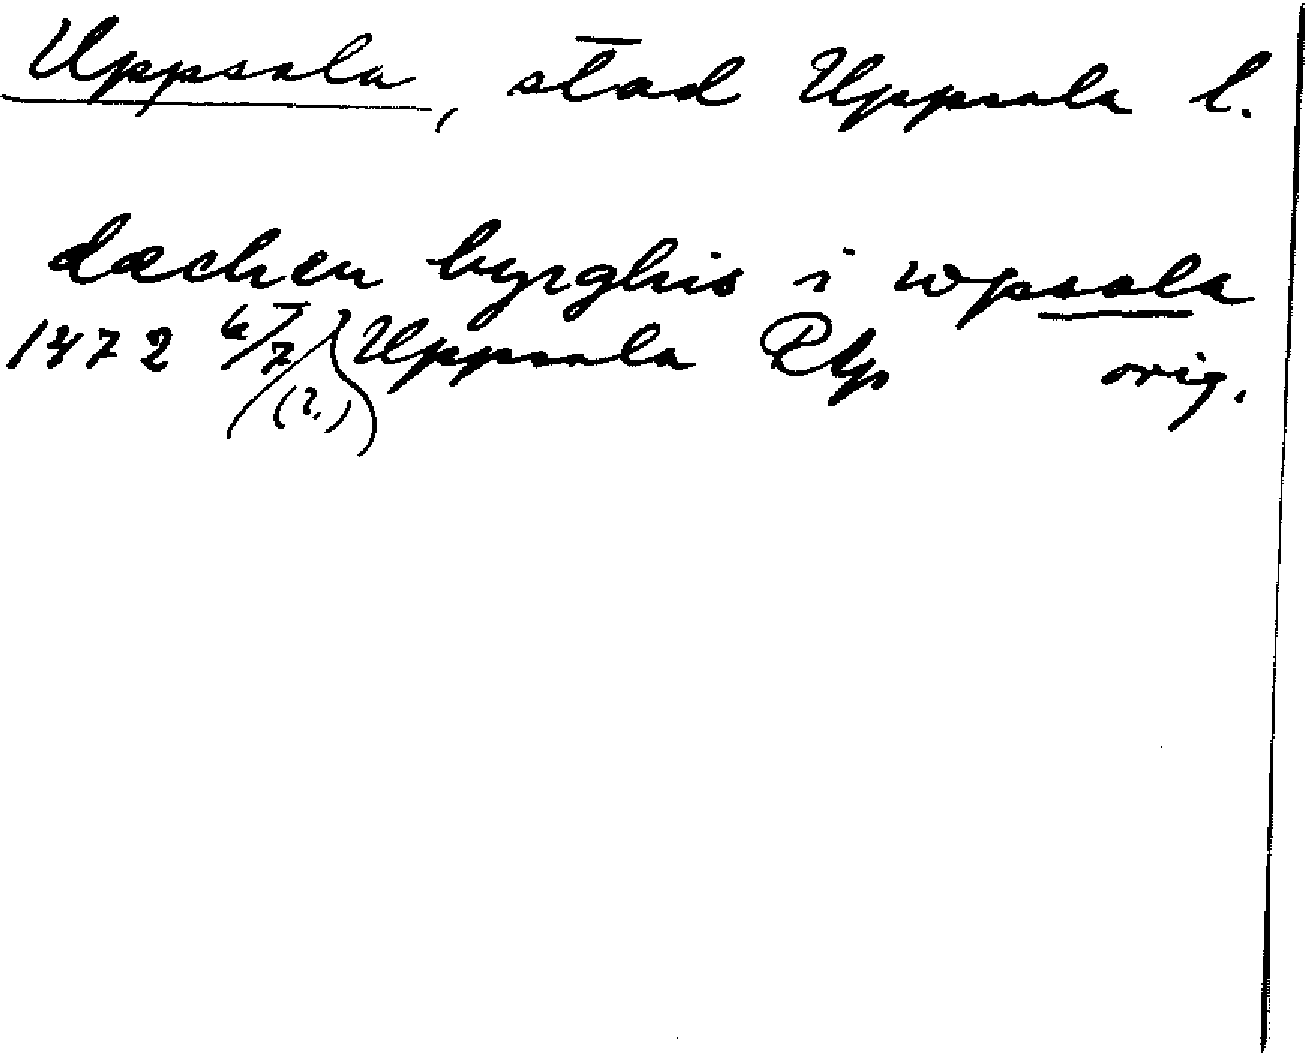 Uppsala, stad Uppsala l.
dæchen byrghis i wpsala
1472 6/7 Uppsala Rlp orig.
(?)